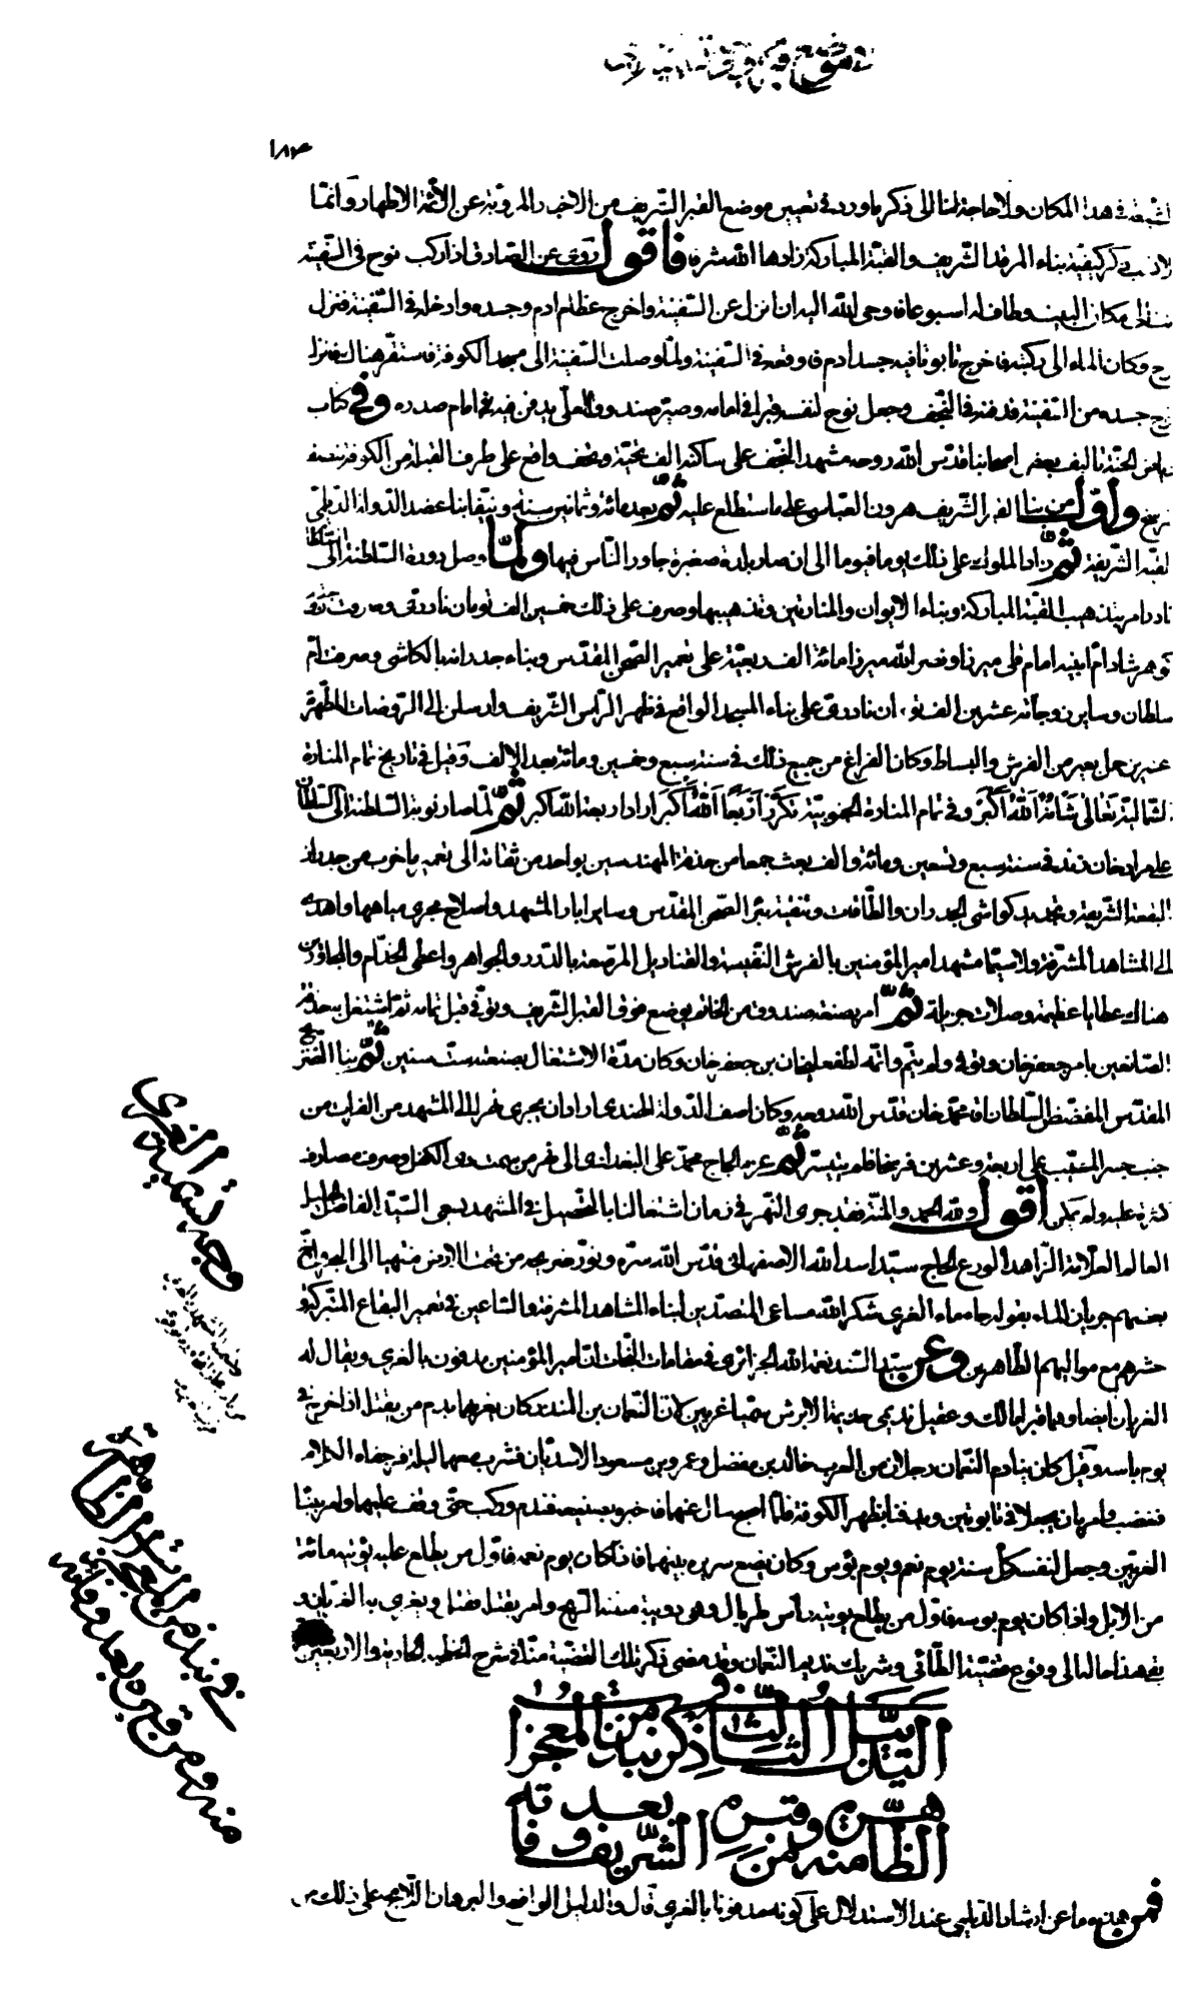 ١٨٣
في هذا المكان ولا حاجة لنا الى ذكر ما ورد في تعيين موضع القبر الشريف من الاخبار المروية عن الأئمة الاطهار وانما
ذكر كيفية بناء المرقد الشريف والقبة المباركة زادها الله شرفا فاقول روى عن الصادق اذ اركب نوح في السفينة
الى مكان البيت وطاف اسبوعا فاوحى الله اليه ان انزل عن السفينة واخرج عظام ادم وجسده وادخله في السفينة فنزل
وكان الماء الى ركبته فاخرج تابوتا فيه جسد ادم فوضعه في السفينة ولما وصلت السفينة الى مسجد الكوفة فاستقر هناك فنزل
جسده من السفينة فدفنه في النجف وجعل نوح لنفسه قبرا في امامه وصير صندوقا لعلى يدفن فيه في امام صدره وفي كتاب
رياض الجنة تاليف بعض اصحابنا قدس الله روحه مشهد النجف على ساكنه الف تحية وتحف واقع على طرف القبلة من الكوفة بنصف
فرسخ واول من بنا القبر الشريف هرون العباسي على ما ستطلع عليه ثم بعد مائة وثمانين سنة بنا عضد الدولة الديلمى
القبة الشريفة ثم زاد الملوك على ذلك يوما فيوما الى ان صار بلدة صغيرة جاور الناس فيها ولما وصل دورة السلطنة الى السلطان
نادر امر بتذهيب القبة المباركة وبناء الايوان والمنارتين وتذهيبها وصرف على ذلك خمسين الف تومان نادرى وصرفت زوجته
كوهر شاد ام ابنيه امام قلى ميرزا ونصر الله ميرزا مائة الف على تعمير الصحن المقدس وبناء جدرانه بالكاشى وصرف ام
سلطان وساير زوجاته عشرين الف تومان نادرى على بناء المسجد الواقع في ظهر الراس الشريف وارسلن الى الروضات المطهرة
عشرين حمل بعير من الفرش والبساط وكان الفراغ من جميع ذلك في سنة سبع وخمسين ومائة بعد الالف وقيل في تاريخ تمام المنارة
الشمالية تعالى شانه الله اكبر وفي تمام المنارة الجنوبية تكرر اربعا الله اكبر اراد اربعة الله اكبر ثم لما صار نوبة السلطنة الى السلطان
على مراد خان زند في سنة سبع وتسعين ومائة والف بعث جمعا من حذقة المهندسين بواحد من ثقاته الى تعمير ما خرب من جدران
البقعة الشريفة وتجديد كواشى الجدران والطاقات وتنقية بئر الصحن المقدس وساير ابار المشهد واصلاح مجرى مياهها واهدى
الى المشاهد المشرفة ولا سيما مشهد امير المؤمنين بالفرش النفيسة والقناديل المرصعة بالدرر والجواهر واعطى الخدام والمجاورين
هناك عطايا عظيمة وصلات جزيلة ثم امر بصنعة صندوق من الخاتم يوضع فوق القبر الشريف وتوفى قبل تمامه ثم اشتغل بعده
الصانعين بامر جعفر خان وتوفى ولم يتم واتمه لطفعلى خان بن جعفر خان وكان مدة الاشتغال بصنعته ست سنين ثم بنا الضريح
المقدس المفضض السلطان اقا محمد خان قدس الله روحه وكان اصف الدولة الهندى اراد ان يجرى نهرا الى المشهد من الفرات من
جنب جسر المسيب على اربعة وعشرين فرسخا فلم يتيسر ثم عزم الحاج محمد على البغدادى الى نهر من سمت ذى الكفل وصرف مصارف
كثيرة عليه ولم يمكن اقول ولله الحمد والمنة فقد جرى النهر في زمان اشتغالنا بالتحصيل في المشهد بسعى السيد الفاضل الجليل
العالم العلامة الزاهد الورع الحاج سيد اسد الله الاصفهانى قدس الله سره ونور ضريحه من تحت الارض منتهيا الى البحر وارخ
بعضهم جريان الماء بقوله جاء ماء الغرى شكر الله مساعى المتصدين لبناء المشاهد المشرفة والساعين في تعمير البقاع المتبركة و
حشرهم مع مواليهم الطاهرين وعن سيد السند نعمة الله الجزائرى في مقامات النجات ان امير المؤمنين مدفون بالغرى ويقال له
الغريان ايضا وهما قبرا مالك وعقيل نديمى جذيمة الابرش سميا غريين لان النعمان بن المنذر كان يغريهما بدم من يقتله اذا خرج في
يوم باسه وقيل كان ينادم النعمان رجلان من العرب خالد بن مفضل وعمرو بن مسعود الاسديان فشرب معهما ليلة فراجعاه الكلام
فغضب وامر بان يجعلا في تابوتين ويدفنا بظهر الكوفة فلما اصبح سال عنهما فاخبر بصنيعه فندم وركب حتى وقف عليهما وامر ببناء
الغريين وجعل لنفسه كل سنة يوم نعم ويوم بؤس وكان يضع سريره بينهما فاذا كان يوم نعمه فاول من يطلع عليه يؤتيه مائة
من الابل واذا كان يوم بوسه فاول من يطلع يؤتيه راس ظربال وهى دويبة منتنة الريح وامر بقتله فقتل ويغرى به الغريان و
بقى هذا حاله الى وقوع قضية الطائى وشريك نديم النعمان وقد مضى ذكر تلك القضية منا في شرح الخطبة الحادية والاربعين
التذييل الثالث في ذكر نبذ من المعجزات
الظاهرة منه ومن قبره الشريف بعد وفاته
فمن ما عن ارشاد الديلمى عند الاستدلال على كونه مدفونا بالغرى قال والدليل الواضح والبرهان اللايح على ذلك من
وجه تسمية الغرى
في نبذ من المعجزات الظاهرة
منه ومن قبره بعد وفاته